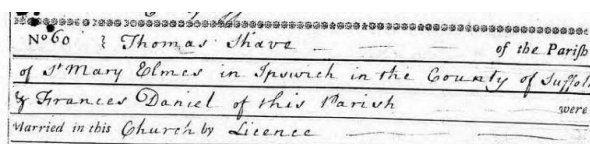 No 60 } Thomas Shave — — — of the Parish
of St Mary Elmes in Ipswich in the County of Suffolk
& Frances Daniel of this Parish — — were
Married in this Church by Licence — — —